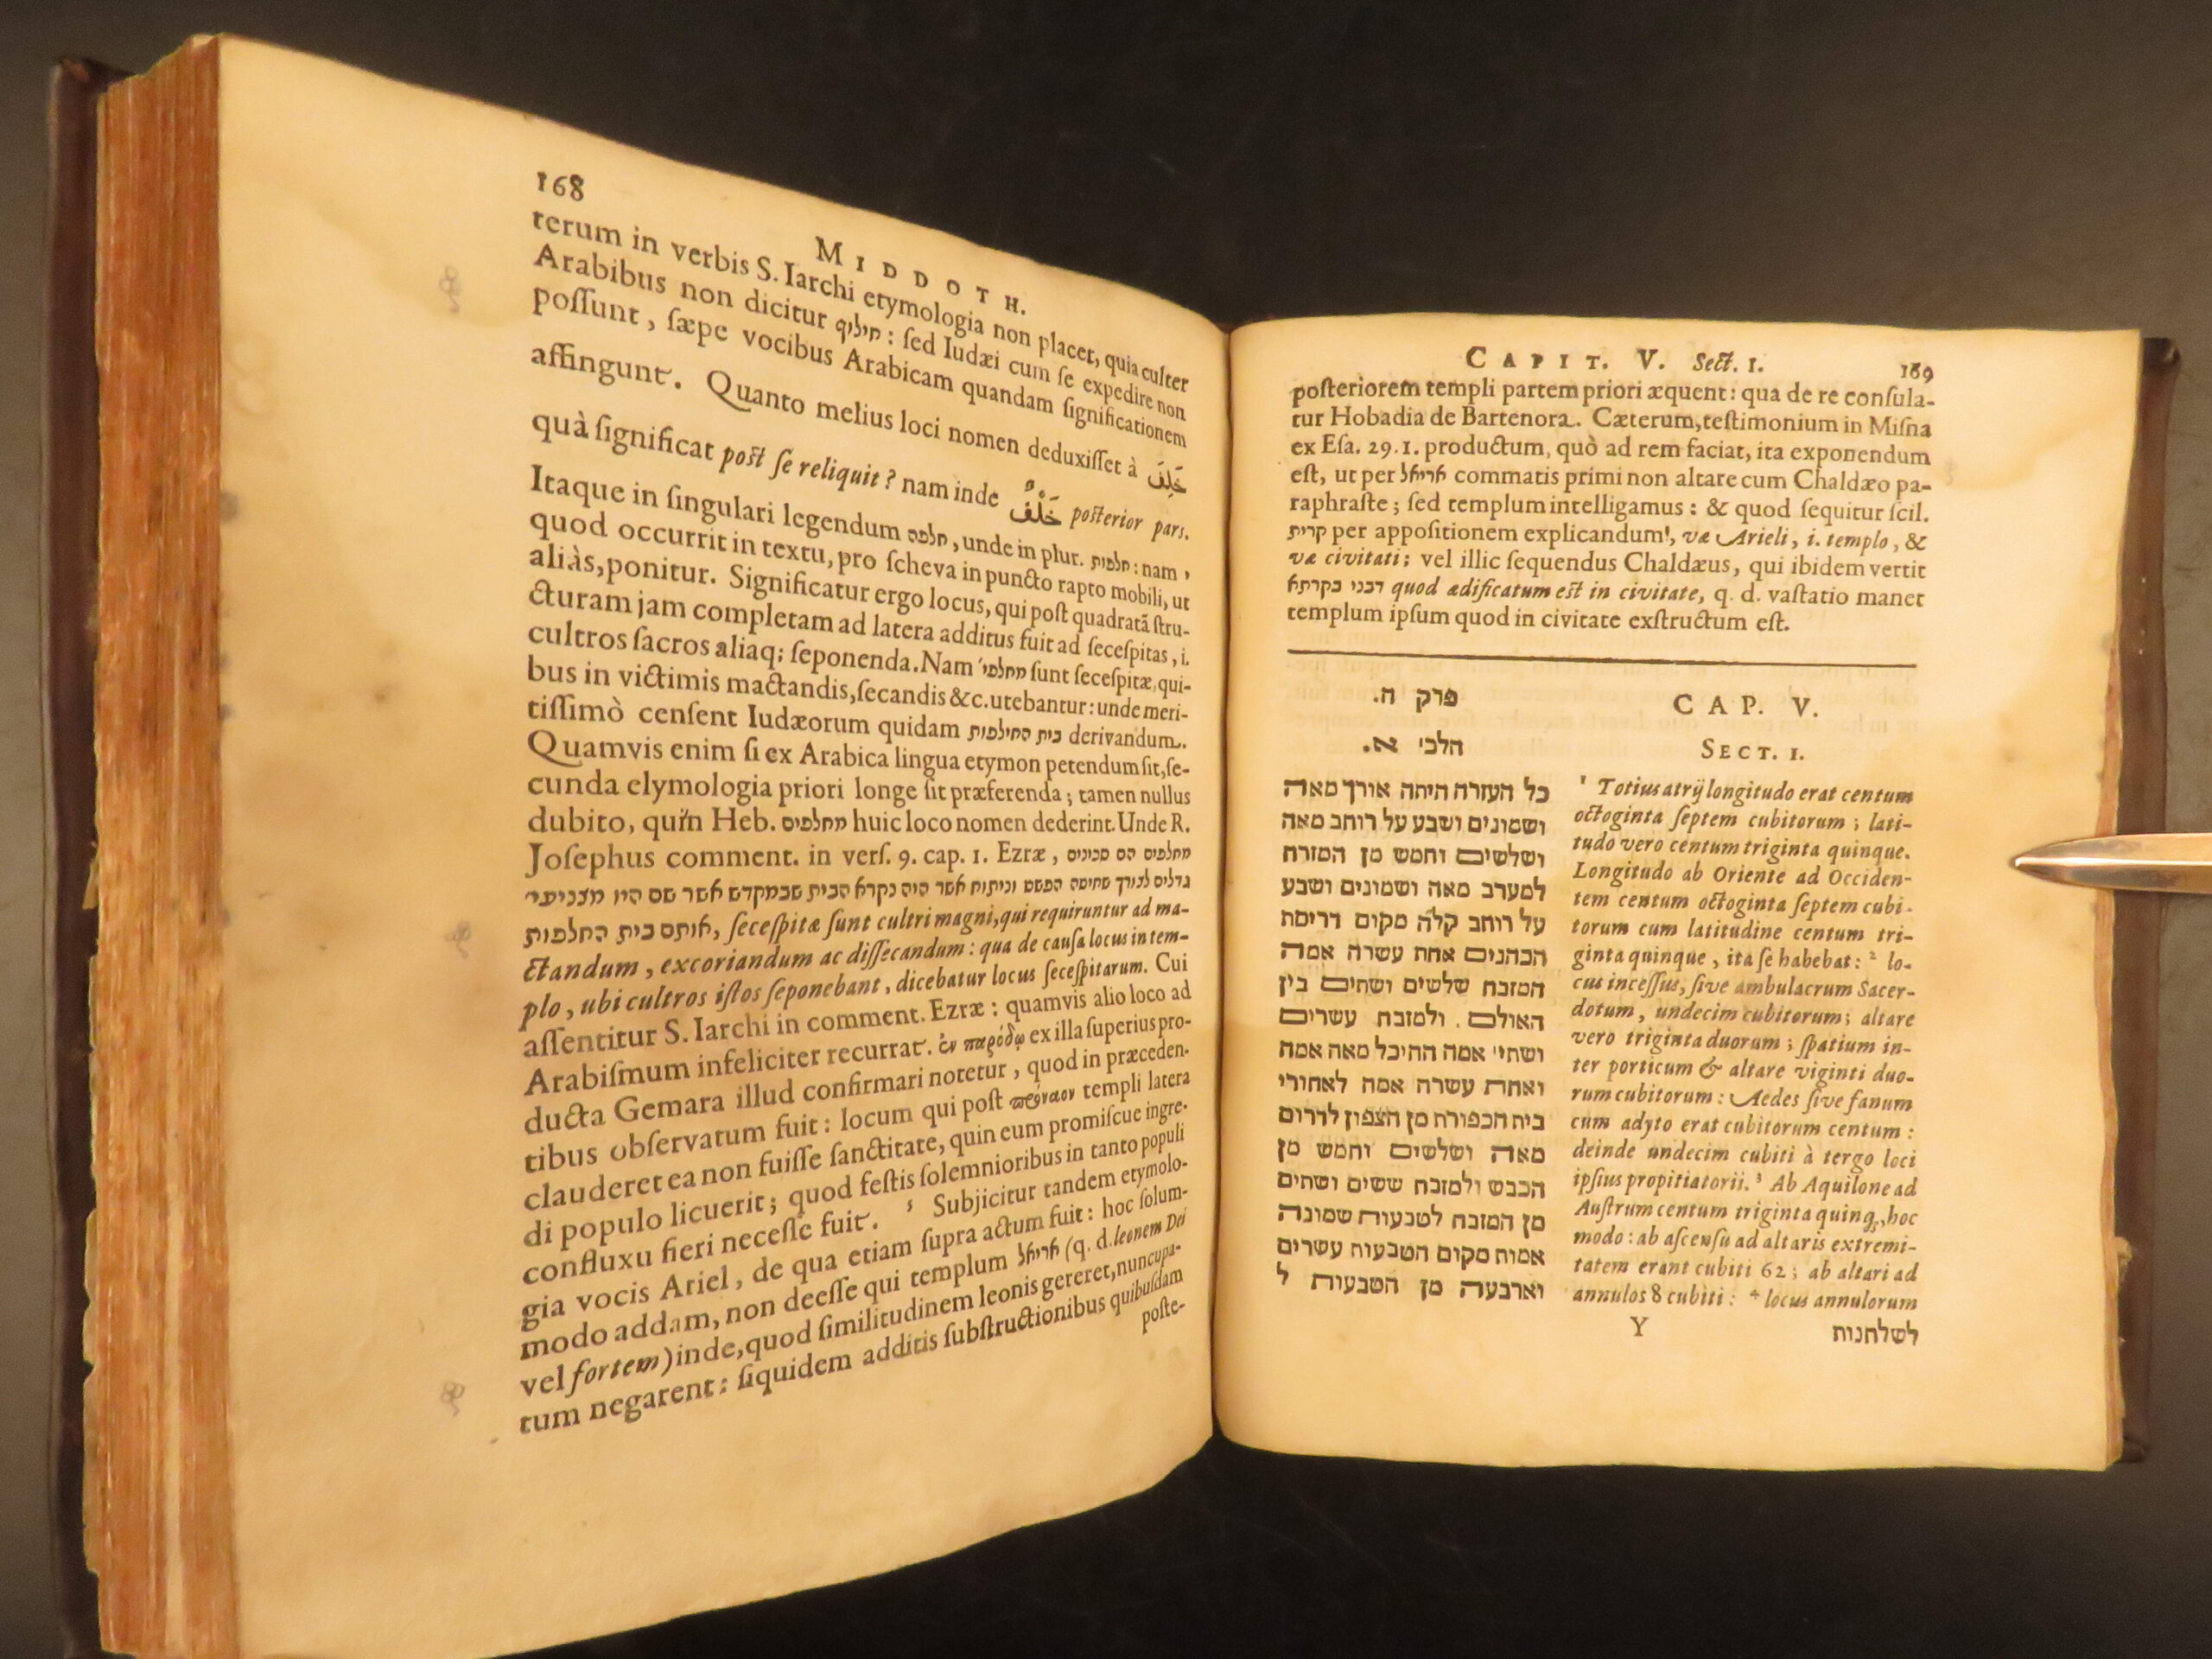 168
MIDDOTH.
terum in verbis S. Iarchi etymologia non placet, quia culter
Arabibus non dicitur חילוף : ſed Iudæi cum ſe expedire non
poſſunt, ſæpe vocibus Arabicam quandam ſignificationem
affingunt. Quanto melius loci nomen deduxiſſet à خَلِفَ
quà ſignificat poſt ſe reliquit? nam inde خَلْفٌ poſterior pars.
Itaque in ſingulari legendum חלפה, unde in plur. חלפות: nam,
quod occurrit in textu, pro ſcheva in puncto rapto mobili, ut
aliàs, ponitur. Significatur ergo locus, qui poſt quadratã ſtru-
cturam jam completam ad latera additus fuit ad ſeceſpitas, i.
cultros ſacros aliaq; ſeponenda. Nam מחלפי' ſunt ſeceſpitæ, qui-
bus in victimis mactandis, ſecandis &c. utebantur: unde meri-
tiſſimò cenſent Iudæorum quidam בית החילפות derivandum.
Quamvis enim ſi ex Arabica lingua etymon petendum ſit, ſe-
cunda elymologia priori longe ſit præferenda; tamen nullus
dubito, quin Heb. מחלפים huic loco nomen dederint. Unde R.
Joſephus comment. in verſ. 9. cap. 1. Ezræ, מחלפים הם סכינים
גדלים לצורך שחיטה הפשט וניתוח אשר היה נקרא הבית שבמקדש אשר שם היו מצניעי'
אותם בית החלפות, ſeceſpitæ ſunt cultri magni, qui requiruntur ad ma-
ctandum, excoriandum ac diſſecandum: qua de cauſa locus in tem-
plo, ubi cultros iſtos ſeponebant, dicebatur locus ſeceſpitarum. Cui
aſſentitur S. Iarchi in comment. Ezræ: quamvis alio loco ad
Arabiſmum infeliciter recurrat. ἐν παρόδῳ ex illa ſuperius pro-
ducta Gemara illud confirmari notetur, quod in præceden-
tibus obſervatum fuit: locum qui poſt πρόναον templi latera
clauderet ea non fuiſſe ſanctitate, quin eum promiſcue ingre-
di populo licuerit; quod feſtis ſolemnioribus in tanto populi
confluxu fieri neceſſe fuit. 5 Subjicitur tandem etymolo-
gia vocis Ariel, de qua etiam ſupra actum fuit: hoc ſolum-
modo addam, non deeſſe qui templum אריאל (q. d. leonem Dei
vel fortem) inde, quod ſimilitudinem leonis gereret, nuncupa-
tum negarent: ſiquidem additis ſubſtructionibus quibuſdam
poſte-
CAPIT. V. Sect. I. 169
poſteriorem templi partem priori æquent: qua de re conſula-
tur Hobadia de Bartenora. Cæterum, teſtimonium in Miſna
ex Eſa. 29.1. productum, quò ad rem faciat, ita exponendum
eſt, ut per אריאל commatis primi non altare cum Chaldæo pa-
raphraſte; ſed templum intelligamus: & quod ſequitur ſcil.
קרית per appoſitionem explicandum, væ Arieli, i. templo, &
væ civitati; vel illic ſequendus Chaldæus, qui ibidem vertit
דבני בקרתא quod ædificatum eſt in civitate, q. d. vaſtatio manet
templum ipſum quod in civitate exſtructum eſt.
פרק ה.
הלכ' א.
כל העזרה היתה אורך מאה
ושמונים ושבע על רוחב מאה
ושלשים וחמש מן המזרח
למערב מאה ושמונים ושבע
על רוחב קל״ה מקום דריסת
הכהנים אחת עשרה אמה
המזבח שלשים ושתים בין
האולם . ולמזבח עשרים
ושתי' אמה ההיכל מאה אמה
ואחת עשרה אמה לאחורי
בית הכפורת מן הצפון לדרום
מאה ושלשים וחמש מן
הכבש ולמזבח ששים ושתים
מן המזבח לטבעות שמונה
אמות מקום הטבעות עשרים
וארבעה מן הטבעות ל
CAP. V.
SECT. I.
1 Totius atrij longitudo erat centum
octoginta ſeptem cubitorum; lati-
tudo vero centum triginta quinque.
Longitudo ab Oriente ad Occiden-
tem centum octoginta ſeptem cubi-
torum cum latitudine centum tri-
ginta quinque, ita ſe habebat: 2 lo-
cus inceſſus, ſive ambulacrum Sacer-
dotum, undecim cubitorum; altare
vero triginta duorum; ſpatium in-
ter porticum & altare viginti duo-
rum cubitorum: Aedes ſive fanum
cum adyto erat cubitorum centum:
deinde undecim cubiti à tergo loci
ipſius propitiatorii. 3 Ab Aquilone ad
Auſtrum centum triginta quinq, hoc
modo: ab aſcenſu ad altaris extremi-
tatem erant cubiti 62; ab altari ad
annulos 8 cubiti: 4 locus annulorum
Y
לשלחנות